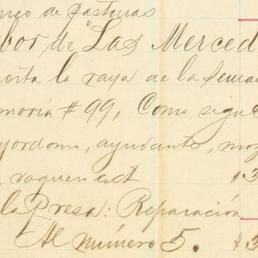 ngo de Pasturas
bor de "Las Merced
orta la raya de la Semana
moria # 99, Como sigue
yordomo, ayudante, moz
, vaquero ect $3
la Presa: Reparación
Al número 5. $3